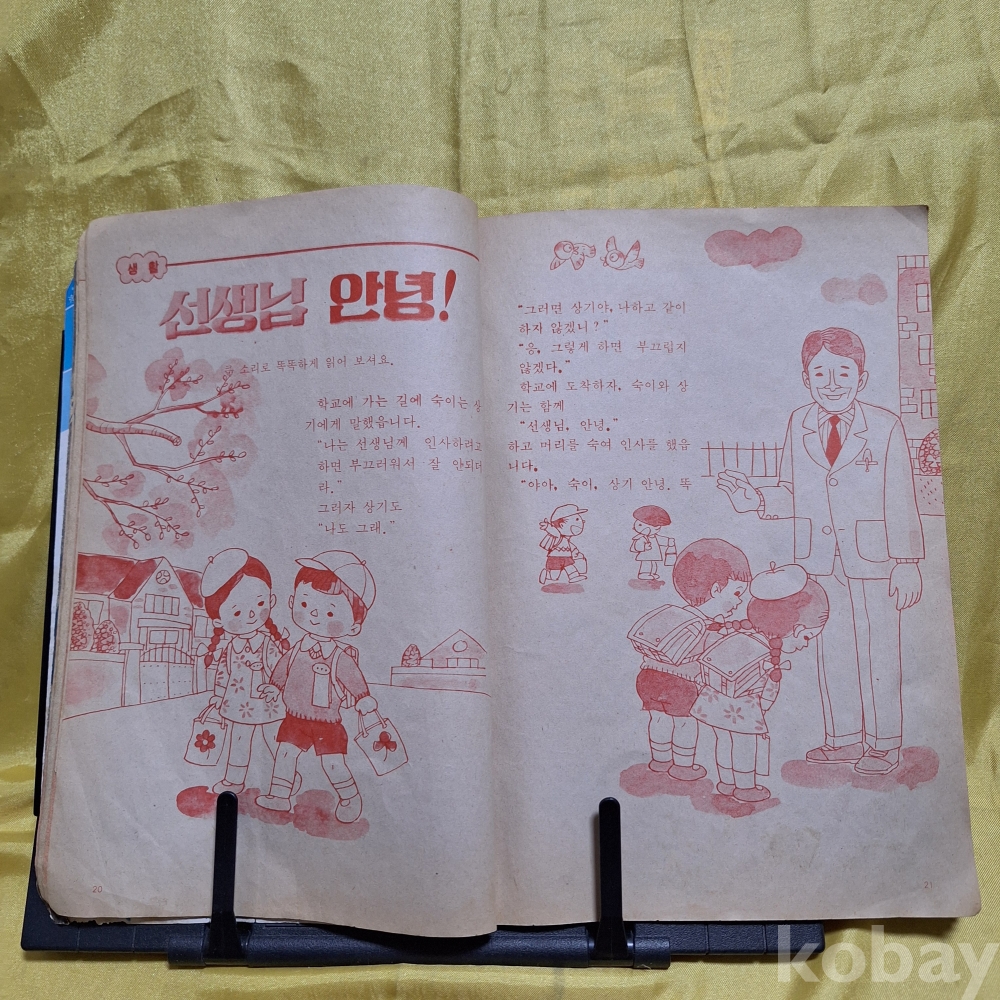 생활
선생님 안녕!
소리로 똑똑하게 읽어 보셔요.
학교에 가는 길에 숙이는 상
기에게 말했읍니다.
"나는 선생님께 인사하려고
하면 부끄러워서 잘 안되더
라."
그러자 상기도
"나도 그래."
20
"그러면 상기야, 나하고 같이
하지 않겠니?"
"응, 그렇게 하면 부끄럽지
않겠다."
학교에 도착하자, 숙이와 상
기는 함께
"선생님, 안녕."
하고 머리를 숙여 인사를 했읍
니다.
"야아, 숙이, 상기 안녕. 똑
21
kobay